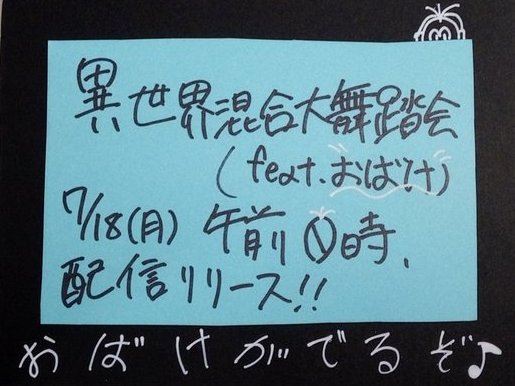 異世界混合大舞踏会
(feat.おばけ)
7/18(月) 午前0時、
配信リリース!!
おばけがでるぞ♪